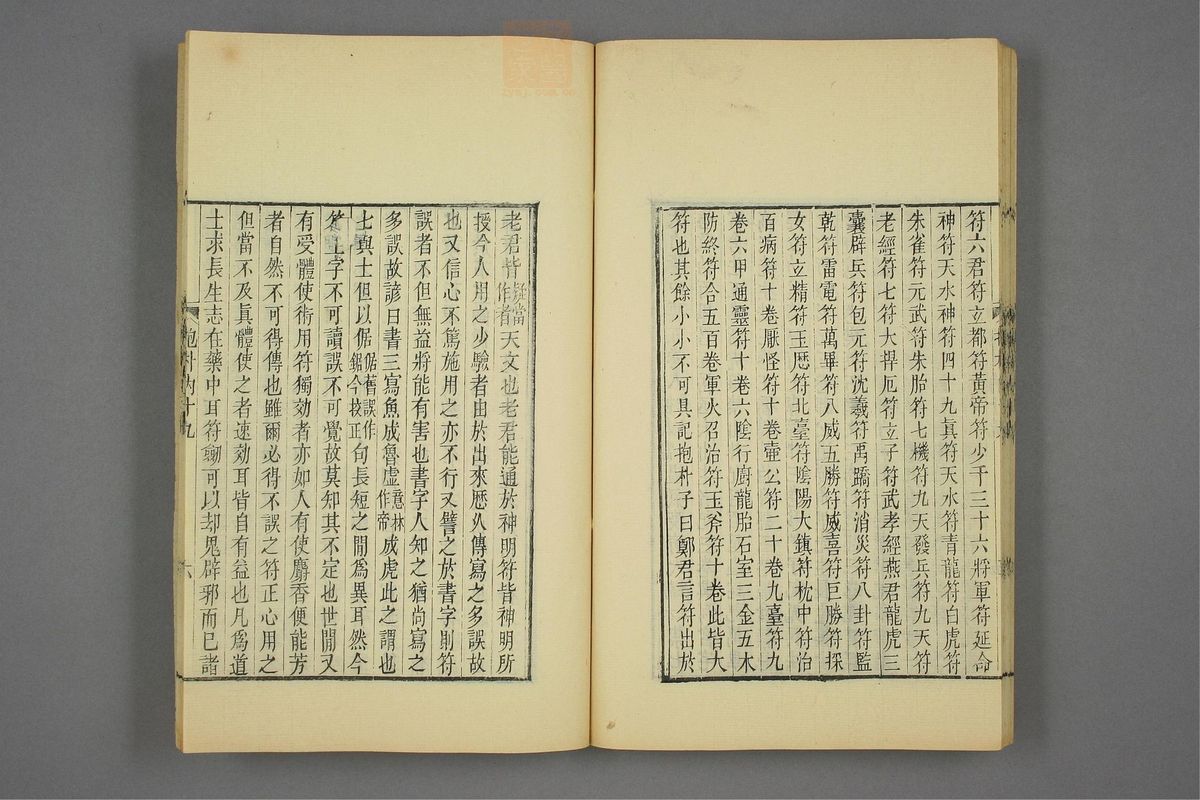 符六君符立都符黃帝符少千三十六將軍符延命
神符天水神符四十九眞符天水符青龍符白虎符
朱雀符元武符朱胎符七機符九天發兵符九天符
老經符七符大捍厄符立子符武孝經燕君龍虎三
囊辟兵符包元符沈羲符禹蹻符消災符八卦符監
乾符雷電符萬畢符八威五勝符威喜符巨勝符採
女符立精符玉厯符北臺符陰陽大鎮符枕中符治
百病符十卷厭怪符十卷壺公符二十卷九臺符九
卷六甲通靈符十卷六陰行廚龍胎石室三金五木
防終符合五百卷軍火召治符玉斧符十卷此皆大
符也其餘小小不可具記抱朴子曰鄭君言符出於
老君皆疑當作者天文也老君能通於神明符皆神明所
授今人用之少驗者由於出來厯久傳寫之多誤故
也又信心不篤施用之亦不行又譬之於書字則符
誤者不但無益將能有害也書字人知之猶尚寫之
多誤故諺曰書三寫魚成魯虛意林作帝成虎此之謂也
七與士但以倨倨舊誤作鋸今挍正句長短之閒爲異耳然今
符上字不可讀誤不可覺故莫知其不定也世閒又
有受體使術用符獨効者亦如人有使麝香便能芳
者自然不可得傳也雖爾必得不誤之符正心用之
但當不及眞體使之者速効耳皆自有益也凡爲道
士求長生志在藥中耳符劒可以却鬼辟邪而已諸
抱朴内十九
六